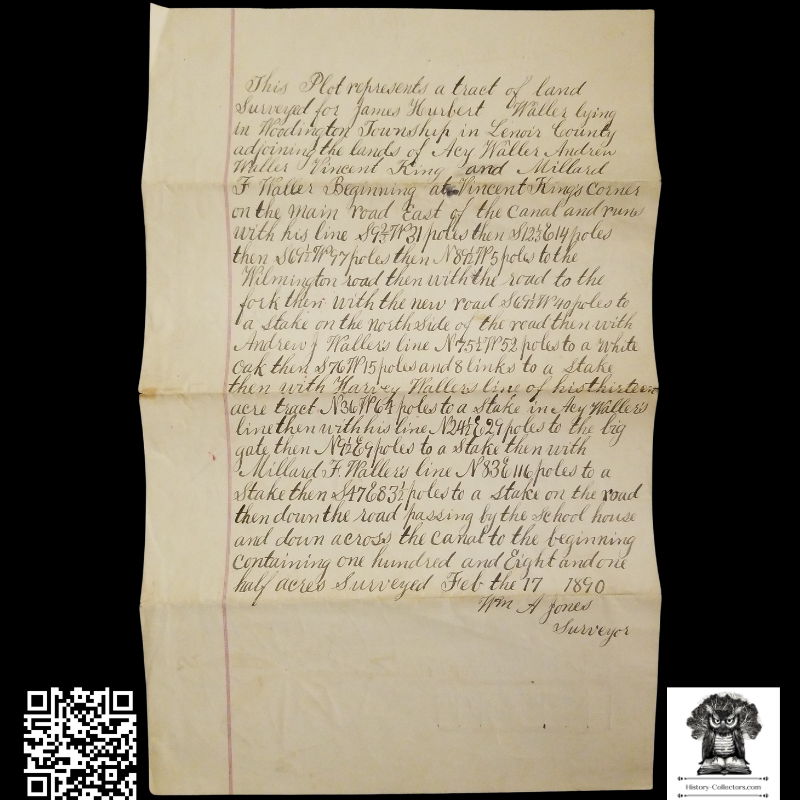 This Plot represents a tract of land
Surveyed for James Hurbert Waller lying
in Woodington Township in Lenoir County
adjoining the lands of Acy Waller Andrew
Waller Vincent King and Millard
F Waller Beginning at Vincent King's corner
on the main road East of the canal and runs
with his line S9⅔W31 poles then S12⅓E14 poles
then S69½W97 poles then N81½W5 poles to the
Wilmington road then with the road to the
fork then with the new road S69½W40 poles to
a Stake on the north side of the road then with
Andrew J Waller's line N75½W52 poles to a White
oak then S76W15 poles and 8 links to a Stake
then with Harvey Wallers line of his thirteen
acre tract N36W64 poles to a Stake in Acy Waller's
line then with his line N24½E29 poles to the big
gate then N9½E9 poles to a Stake then with
Millard F. Waller's line N83E116 poles to a
Stake then S47E83½ poles to a stake on the road
then down the road passing by the School house
and down across the canal to the beginning
containing one hundred and Eight and one
half acres Surveyed Feb the 17 1890
Wm A Jones
Surveyor
History-Collectors.com